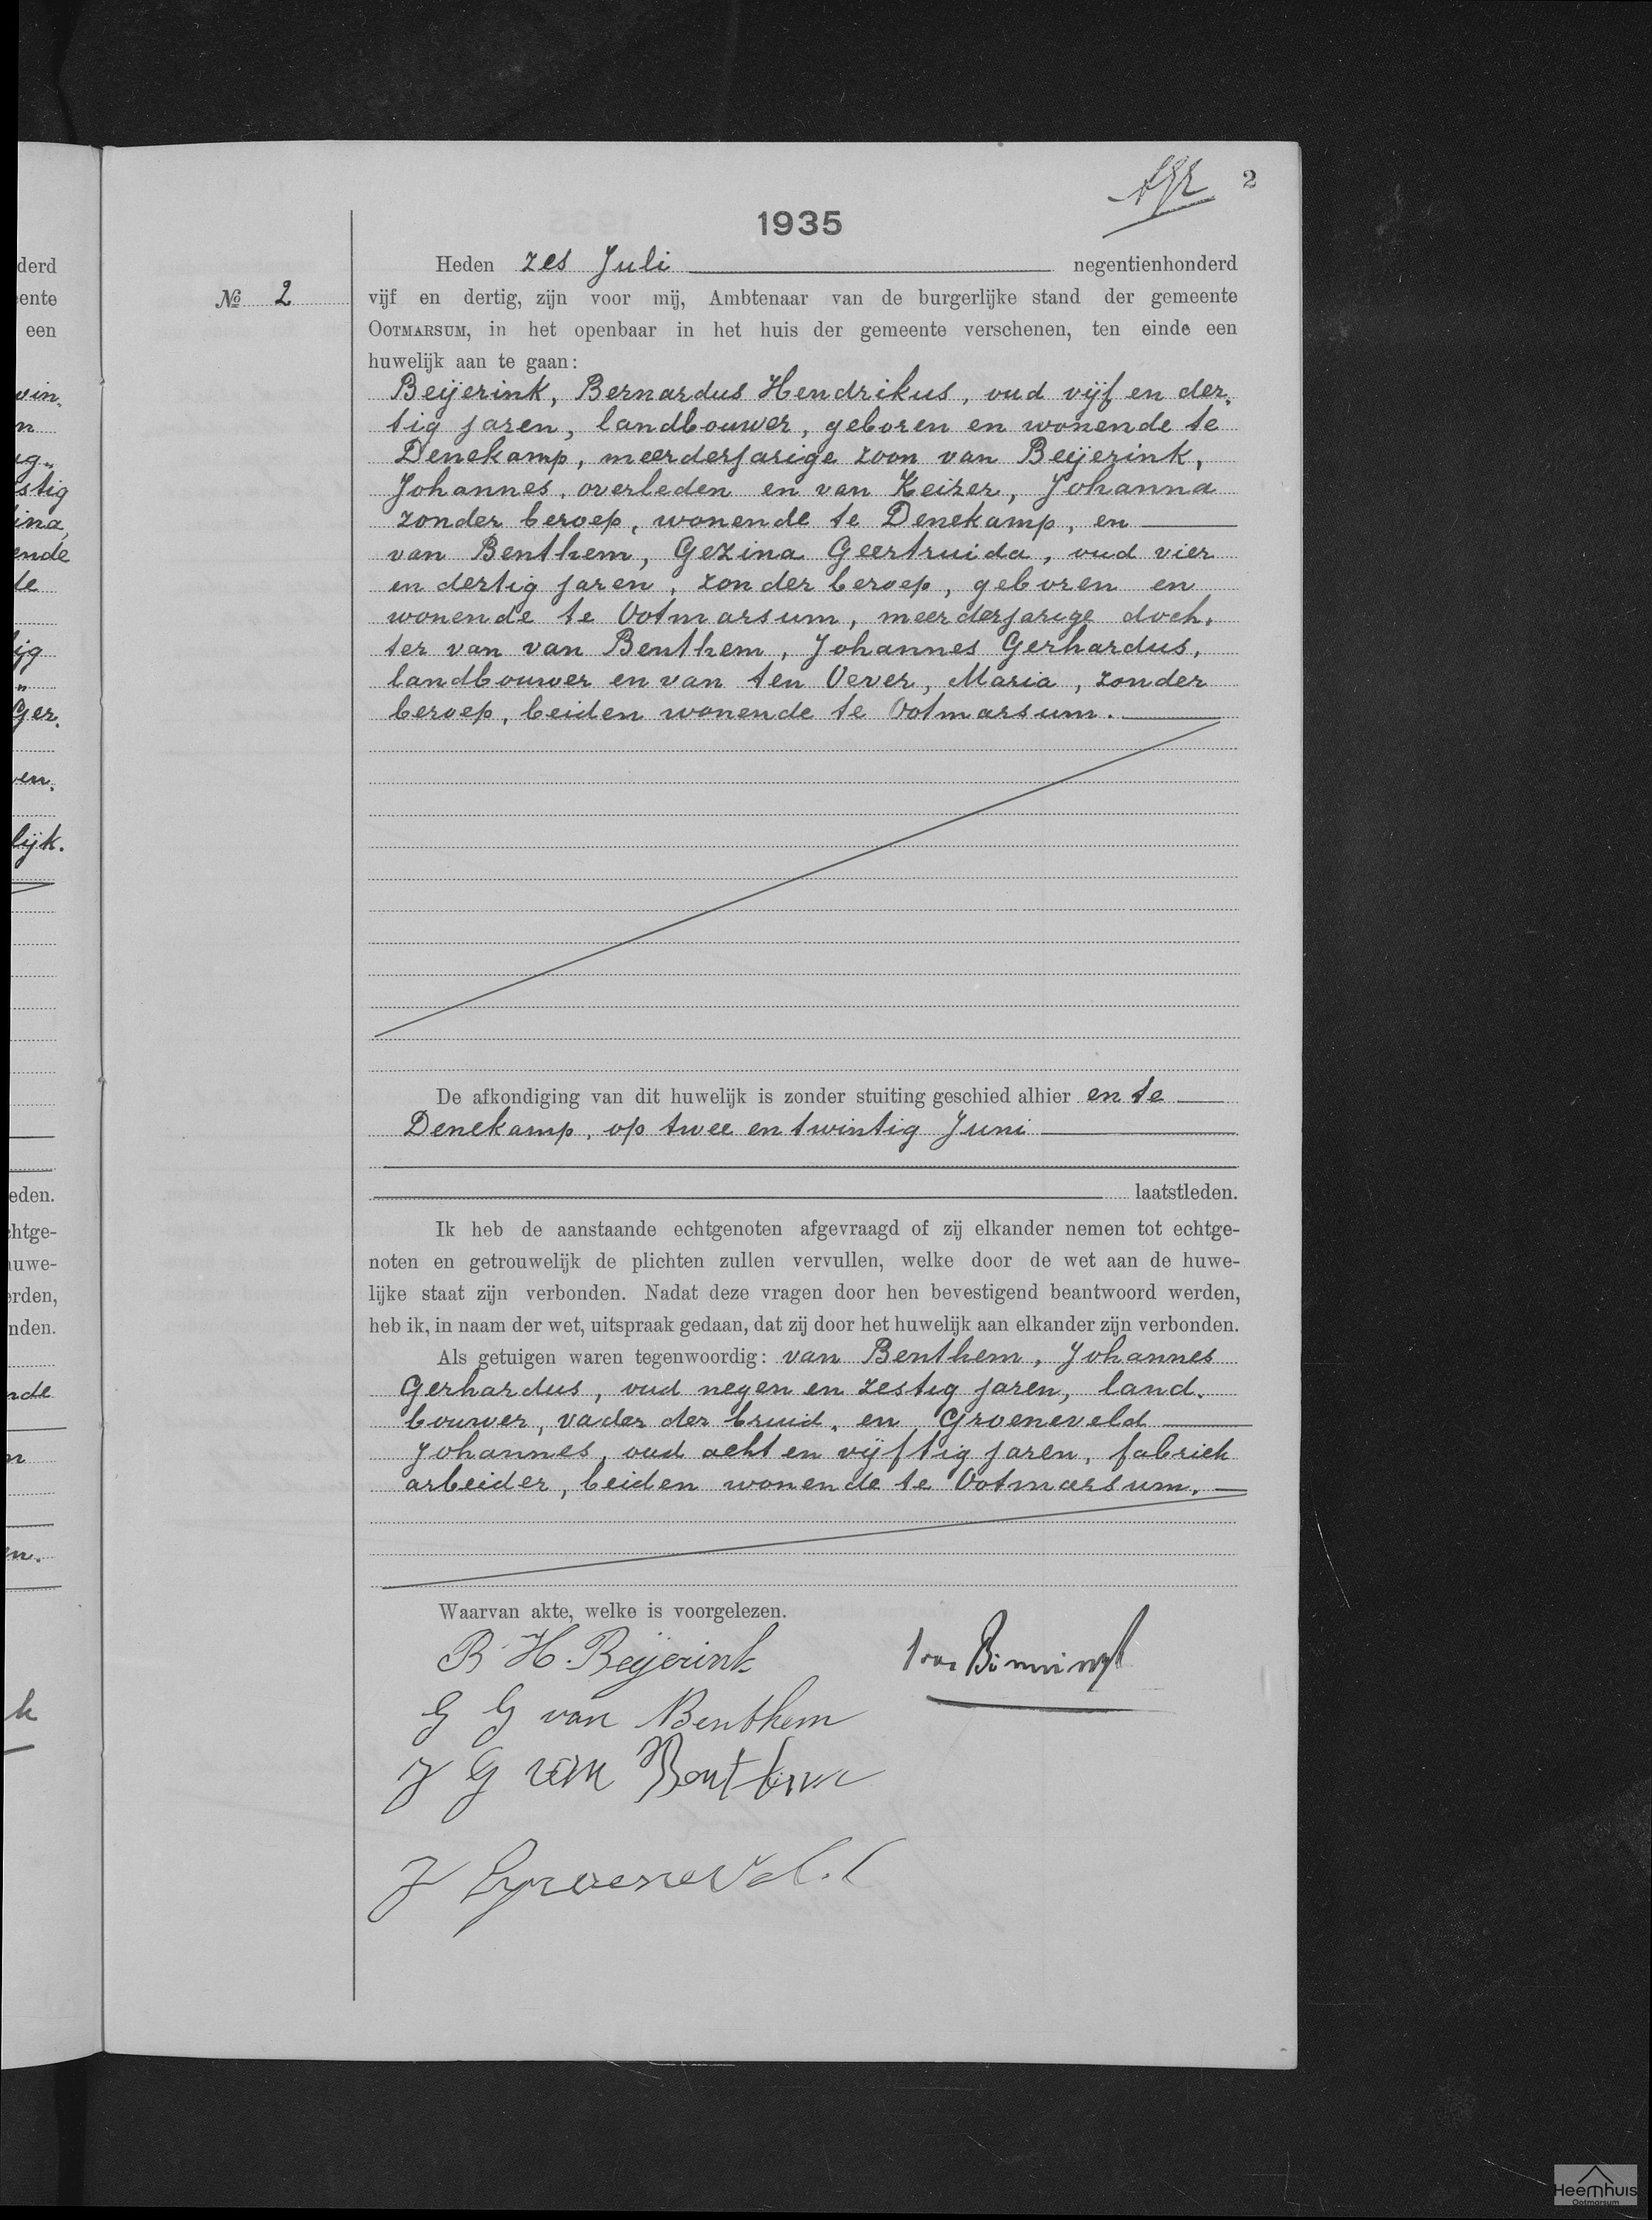 2
1935
Heden zes Juli negentienhonderd
№ 2
vijf en dertig, zijn voor mij, Ambtenaar van de burgerlijke stand der gemeente
OOTMARSUM, in het openbaar in het huis der gemeente verschenen, ten einde een
huwelijk aan te gaan:
Beijerink, Bernardus Hendrikus, oud vijf en der-
tig jaren, landbouwer, geboren en wonende te
Denekamp, meerderjarige zoon van Beijerink,
Johannes, overleden en van Keizer, Johanna
zonder beroep, wonende te Denekamp, en
van Benthem, Gezina Geertruida, oud vier
en dertig jaren, zonder beroep, geboren en
wonende te Ootmarsum, meerderjarige doch-
ter van van Benthem, Johannes Gerhardus,
landbouwer en van ten Oever, Maria, zonder
beroep, beiden wonende te Ootmarsum.
De afkondiging van dit huwelijk is zonder stuiting geschied alhier en te
Denekamp, op twee en twintig Juni
laatstleden.
Ik heb de aanstaande echtgenoten afgevraagd of zij elkander nemen tot echtge-
noten en getrouwelijk de plichten zullen vervullen, welke door de wet aan de huwe-
lijke staat zijn verbonden. Nadat deze vragen door hen bevestigend beantwoord werden,
heb ik, in naam der wet, uitspraak gedaan, dat zij door het huwelijk aan elkander zijn verbonden.
Als getuigen waren tegenwoordig: van Benthem, Johannes
Gerhardus, oud negen en zestig jaren, land-
bouwer, vader der bruid, en Groeneveld
Johannes, oud acht en vijftig jaren, fabriek
arbeider, beiden wonende te Ootmarsum.
Waarvan akte, welke is voorgelezen.
B H. Beijerink
G G van Benthem
J G van Benthem
J Groeneveld
derd
ente
een
vin-
n
stig
ina,
ende
de
Ger-
en.
lijk.
eden.
chtge-
huwe-
erden,
nden.
nde
n
Heemhuis
Ootmarsum